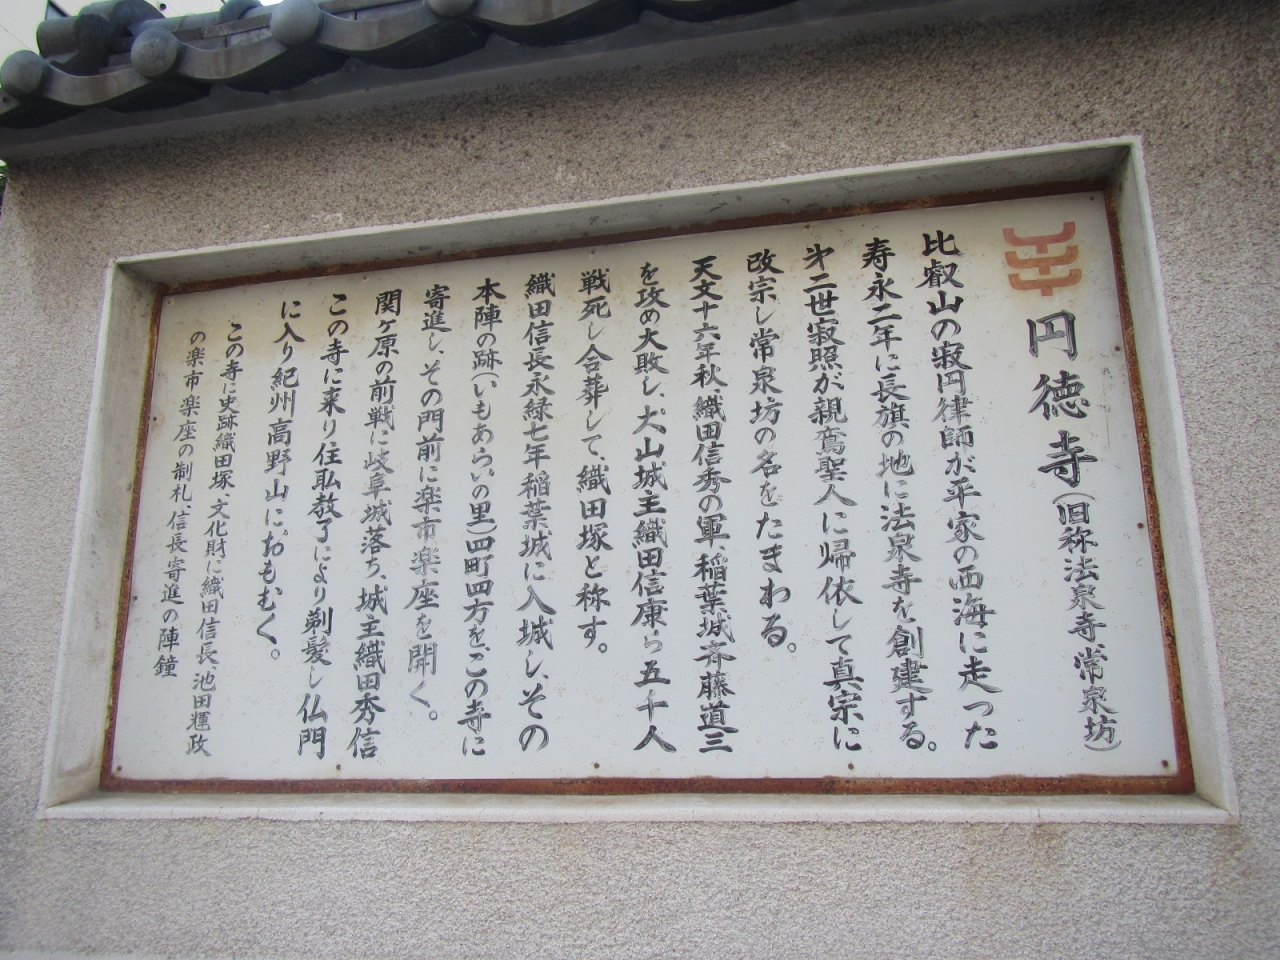 円徳寺(旧称法泉寺常泉坊)
比叡山の寂円律師が平家の西海に走った
寿永二年に長旗の地に法泉寺を創建する。
㐧二世寂照が親鸞聖人に帰依して真宗に
改宗し常泉坊の名をたまわる。
天文十六年秋、織田信秀の軍、稲葉城斉藤道三
を攻め大敗し、犬山城主織田信康ら五千人
戦死し合葬して、織田塚と称す。
織田信長永緑七年稲葉城に入城し、その
本陣の跡(いもあらいの里)四町四方を、この寺に
寄進し、その門前に楽市楽座を開く。
関ヶ原の前戦に岐阜城落ち、城主織田秀信
この寺に来り住職教了により剃髪し仏門
に入り紀州高野山におもむく。
この寺に史跡織田塚、文化財に織田信長、池田輝政
の楽市楽座の制札、信長寄進の陣鐘